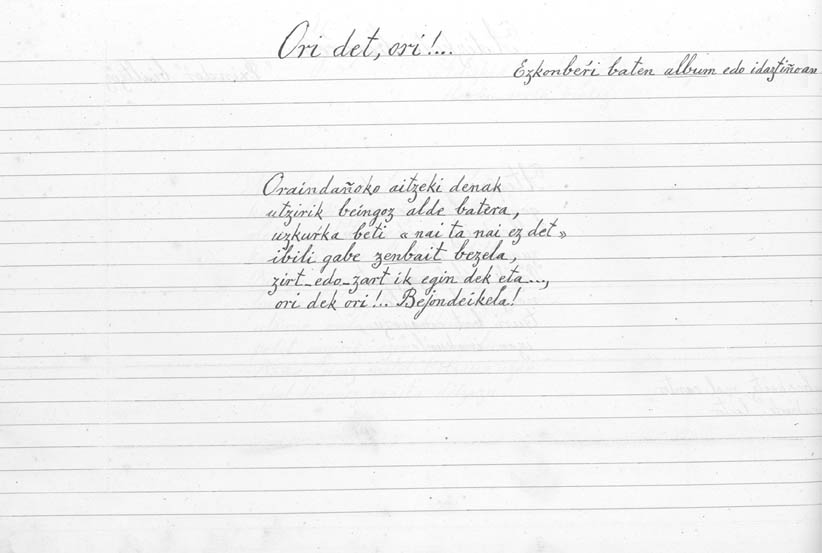 Ori det, ori!...
Ezkonbeŕi baten album edo idaztiñoan
Oraindañoko aitzeki denak
utzirik beingoz alde batera,
uzkuŕka beti « nai ta nai ez det »
ibili gabe zenbait bezela,
zirt-edo-zart ik egin dek eta...,
ori dek ori!.. Bejondeikela!